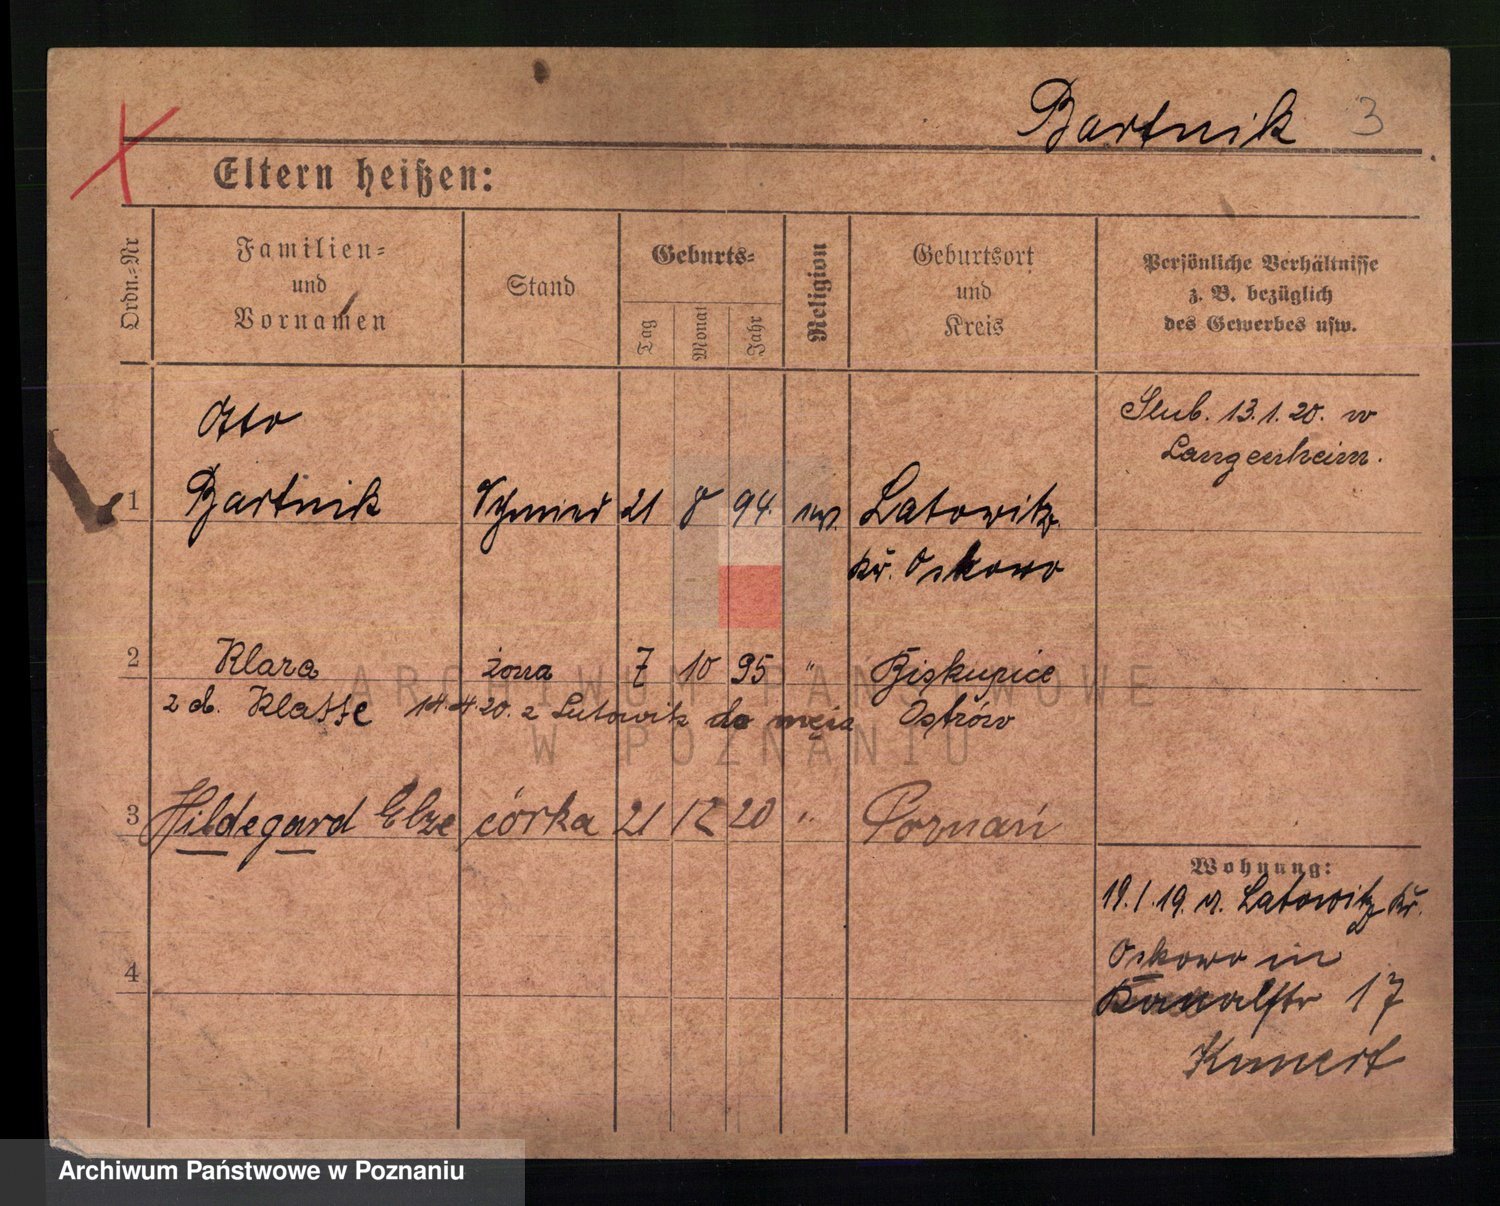 Bartnik 3
Eltern heißen:
Ordn.-Nr
Familien-
und
Vornamen
Stand
Geburts-
Tag
Monat
Jahr
Religion
Geburtsort
und
Kreis
Persönliche Verhältnisse
z. B. bezüglich
des Gewerbes usw.
Otto
Ślub. 13.1.20. w
Langenheim.
1 Bartnik Schmied 21 8 94. ew. Latowitz
Kr.
2 Klara żona 7 10 95 " Biskupice
z d. Klatte 14.4.20. z Lutowitz do męża Ostrów
3 Hildegard Elze córka 21 12 20 " Poznań
Wohnung:
19./.19. v. Latowitz Kr.
in
4
Kanalstr 17
Kunert
ARCHIWUM PAŃSTWOWE
W POZNANIU
Archiwum Państwowe w Poznaniu